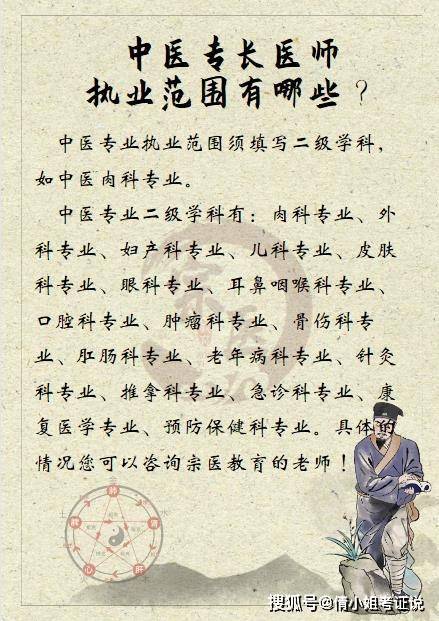 中医专长医师
执业范围有哪些？
中医专业执业范围须填写二级学科，
如中医肉科专业。
中医专业二级学科有：肉科专业、外
科专业、妇产科专业、儿科专业、皮肤
科专业、眼科专业、耳鼻咽喉科专业、
口腔科专业、肿瘤科专业、骨伤科专
业、肛肠科专业、老年病科专业、针灸
科专业、推拿科专业、急诊科专业、康
复医学专业、预防保健科专业。具体的
情况您可以咨询宗医教育的老师！
搜狐号@倩小姐考证说